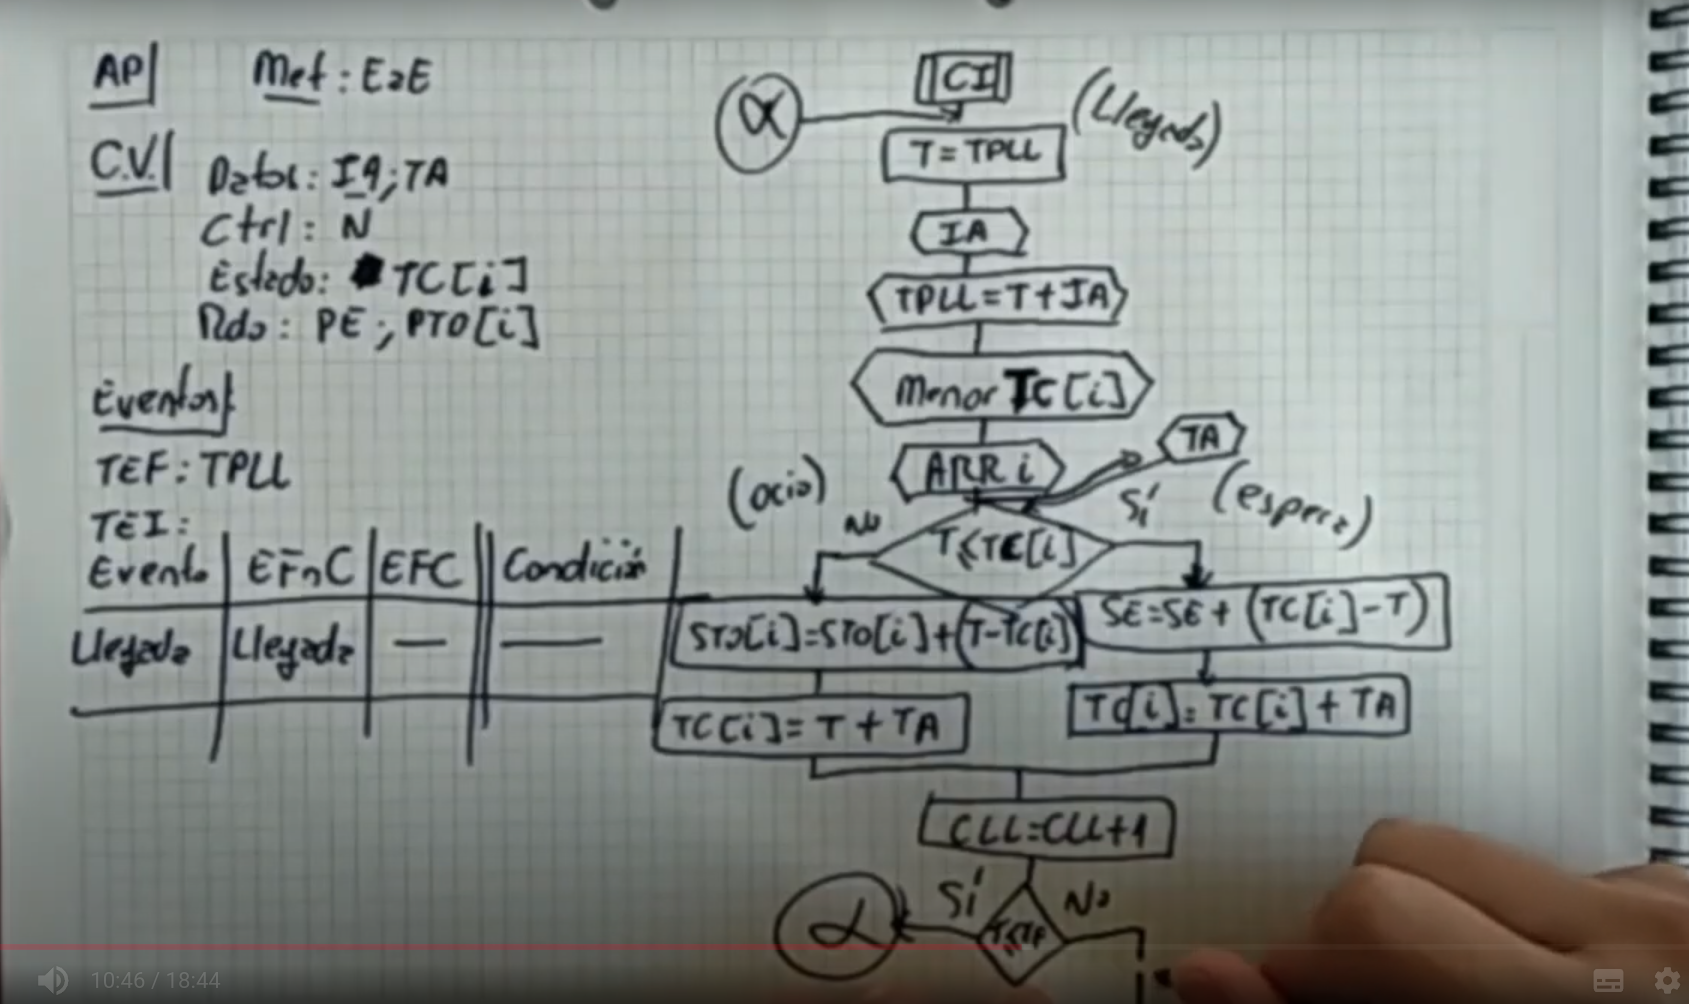 AP Met: EaE
C.V. Datos: IA; TA
Ctrl: N
Estado: TC[i]
Rdo: PE; PTO[i]
Eventos
TEF: TPLL
TEI:
Evento EFnC EFC Condición
Llegada Llegada — —
CI
α
(Llegada)
T = TPLL
IA
TPLL = T + IA
Menor TC[i]
ARR i
TA
(ocio)
No
T ≤ TC[i]
Sí
(espera)
STO[i]=STO[i]+(T-TC[i])
SE=SE + (TC[i]-T)
TC[i]= T + TA
TC[i]= TC[i] + TA
CLL=CLL+1
α
Sí
T≤TF
No
10:46 / 18:44